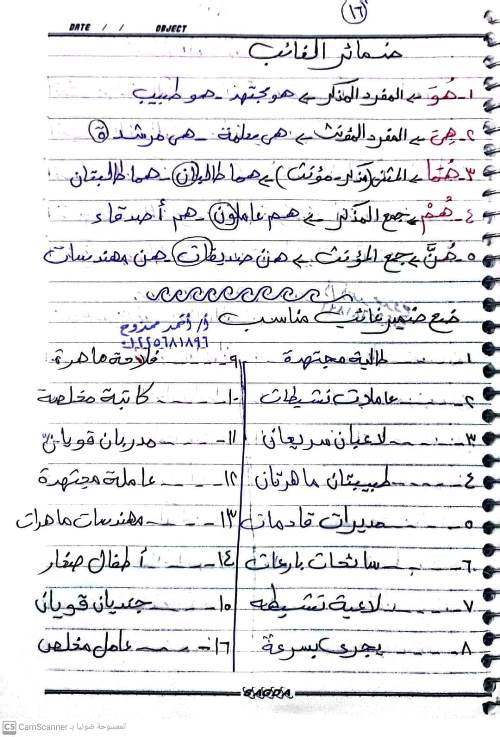 ١٦
DATE / / OBJECT
ضمائر الغائب
١- هُوَ ← المفرد المذكر ← هو مجتهد - هو طبيب
٢- هِىَ ← المفرد المؤنث ← هى معلمة - هى مرشدة
٣- هُمَا ← المثنى (مذكر - مؤنث) ← هما طالبان - هما طالبتان
٤- هُمْ ← جمع المذكر ← هم عاملون - هم أصدقاء
٥- هُنَّ ← جمع المؤنث ← هن صديقات - هن مهندسات
ضع ضمير غائب مناسب
أ/ أحمد ممدوح
١- ---- طالبة مجتهدة
٢- ---- عاملات نشيطات
٣- ---- لاعبان سريعان
٤- ---- طبيبتان ماهرتان
٥- ---- مديرات قادمات
٦- ---- سائحات بارعات
٧- ---- لاعبة نشيطه
٨- ---- يجرى بسرعة
٩- ---- فلاحة ماهرة
١٠- ---- كاتبة مخلصة
١١- ---- مدربان قويان
١٢- ---- عاملة مجتهدة
١٣- ---- مهندسات ماهرات
١٤- ---- أطفال صغار
١٥- ---- جنديان قويان
١٦- ---- عامل مخلص
CS CamScanner الممسوحة ضوئيا بـ